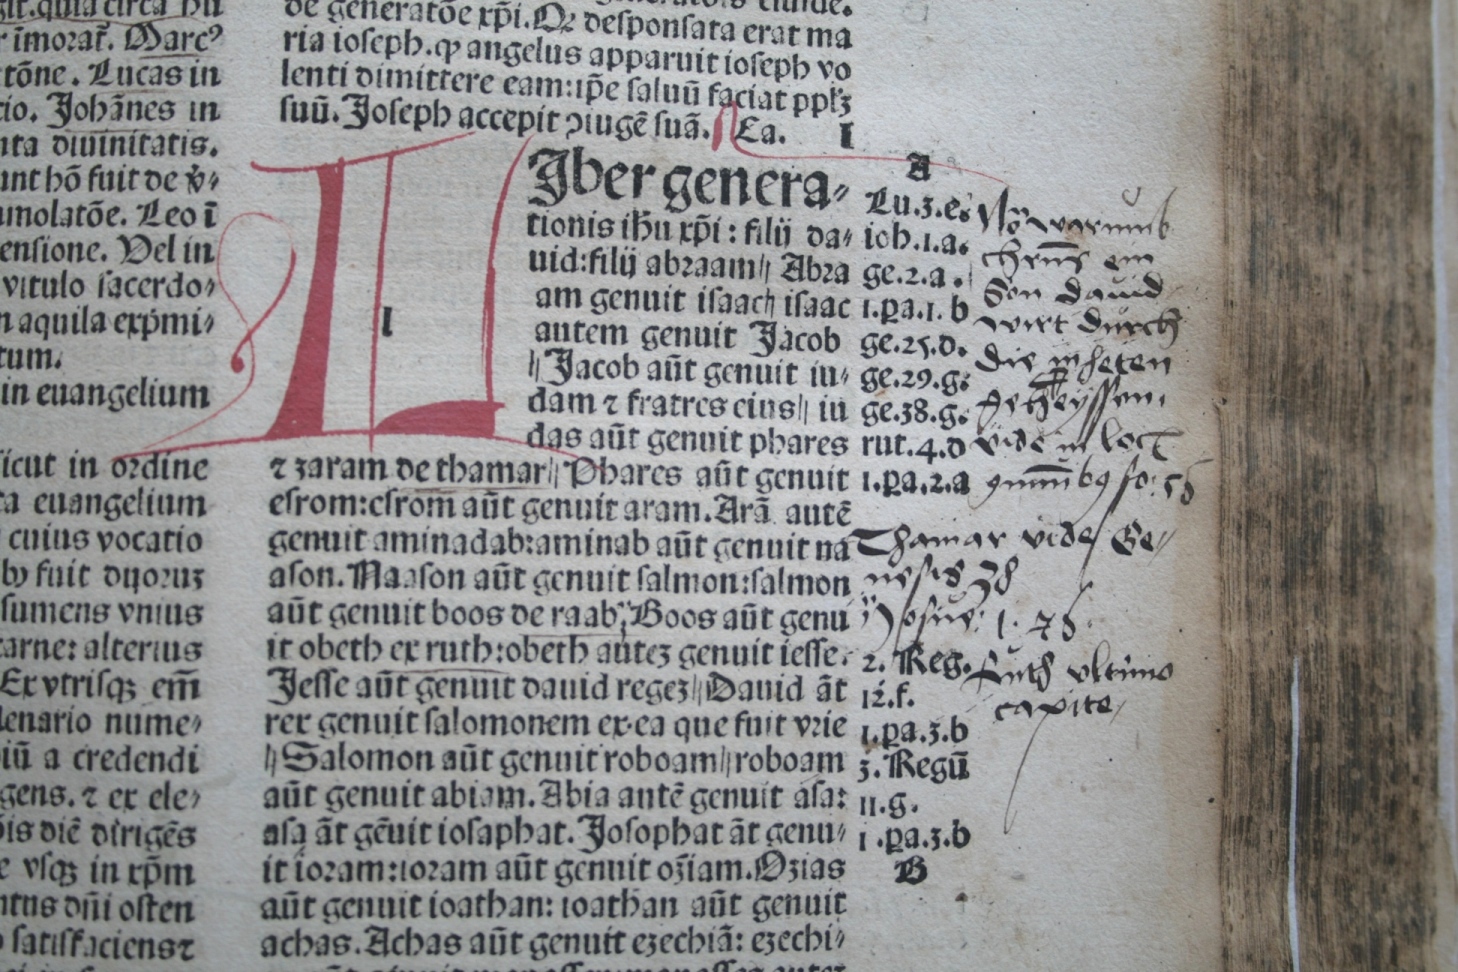 git.quia circa hu
r īmorat̄. Marcꝰ
tōne. Lucas in
cio. Johānes in
nta diuinitatis.
unt hō fuit de v̄⸗
umolatōe. Leo ī
ensione. Vel in
vitulo sacerdo⸗
n aquila exp̄mi⸗
tum.
in euangelium
sicut in ordine
ta euangelium
cuius vocatio
bꝫ fuit duoruꝫ
sumens vnius
carne: alterius
Ex vtrisqꝫ em̄
denario nume⸗
iū a credendi
gens. ⁊ ex ele⸗
is diē dirigēs
e vsqꝫ in xp̄m
ntus dn̄i osten
satisfaciens⁊
de generatōe xp̄i. Qꝛ desponsata erat ma
ria ioseph. ꝙ angelus apparuit ioseph vo
lenti dimittere eam: ip̄e saluū faciat ppl̄ꝫ
suū. Joseph accepit ꝯiugē suā. Ca. I
L Iber genera⸗
tionis ih̄u xp̄i: filij da⸗
uid: filij abraam|| Abra
am genuit isaac|| isaac
autem genuit Jacob
|| Jacob aūt genuit iu⸗
dam ⁊ fratres eius|| iu
das aūt genuit phares
⁊ zaram de thamar|| Phares aūt genuit
esrom: esrom̄ aūt genuit aram. Arā autē
genuit aminadab: aminab aūt genuit na
ason. Naason aūt genuit salmon: salmon
aūt genuit boos de raab; Boos aūt genu
it obeth ex ruth: obeth auteꝫ genuit iesse.
Jesse aūt genuit dauid regeꝫ|| Dauid āt
rex genuit salomonem ex ea que fuit vrie
|| Salomon aūt genuit roboam|| roboam
aūt genuit abiam. Abia autē genuit asa:
asa āt gēuit iosaphat. Josophat āt genu⸗
it ioram: ioram aūt genuit oziam. Ozias
aūt genuit ioathan: ioathan aūt genuit
achas. Achas aūt genuit ezechiā: ezechi⸗
A
Lu.3.e.
ioh.1.a.
ge.2.a.
1.pa.1.b
ge.25.d.
ge.29.g.
ge.38.g.
rut.4.d
1.pa.2.a
2. Reg.
12.f.
1.pa.3.b
3. Regū
11.g.
1.pa.3.b
B
warumb
ein
Son dauid
wirt durch
die
vide in loc
Thamar vide Ge⸗
nesis 38
Josue
Ruth vltimo
capite